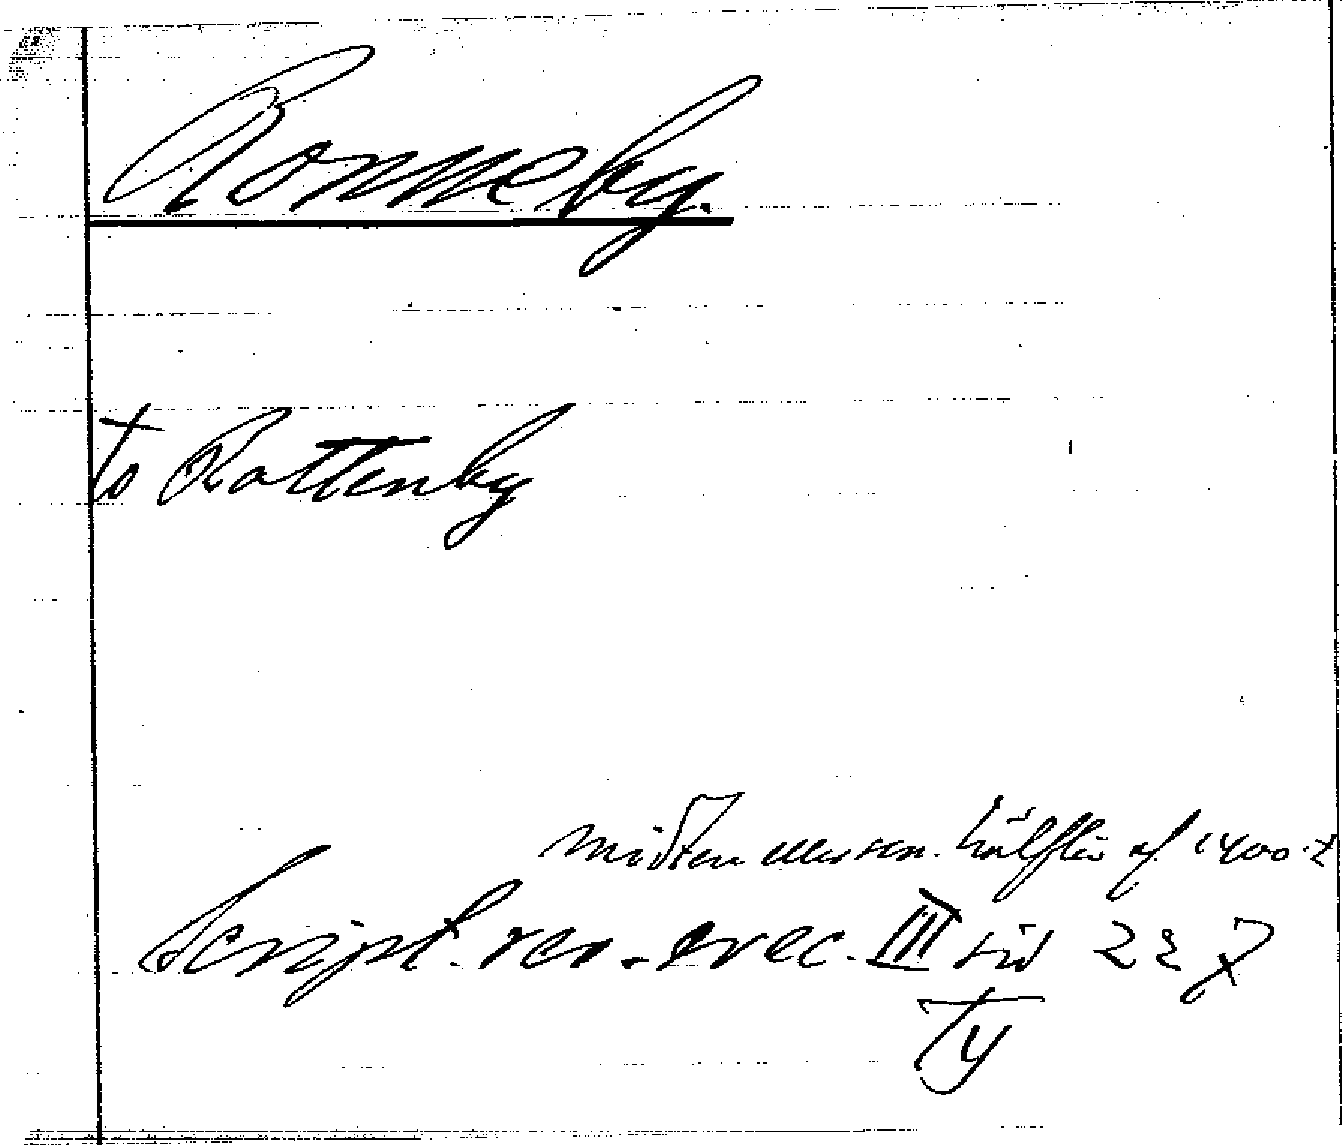 Ronneby.
to Rottenby
midten hälften af 1400-t
Script. rer. svec. III sid 227
Ty